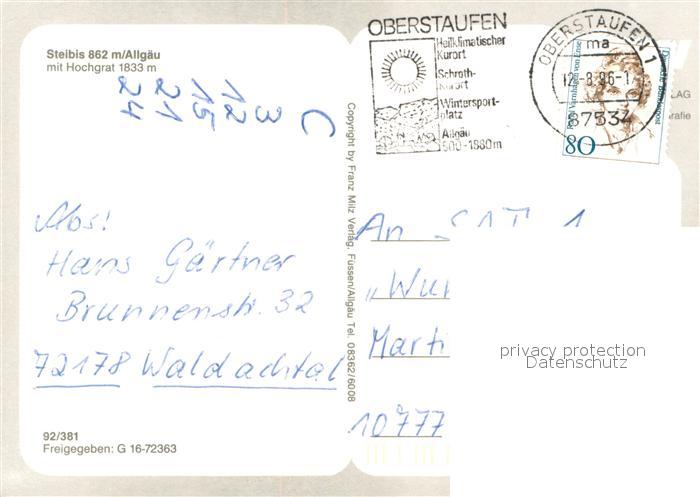 Steibis 862 m/Allgäu
mit Hochgrat 1833 m
3
12
15
21
24
Abs!
Hans Gärtner
Brunnenstr. 32
72178 Waldachtal
92/381
Freigegeben: G 16-72363
Copyright by Franz Milz Verlag, Füssen/Allgäu Tel. 08362/6008
OBERSTAUFEN
Heilklimatischer
Kurort
Schroth-
kurort
Wintersport-
platz
Allgäu
800-1880m
OBERSTAUFEN 1
ma
87534
Rahel Varnhagen von Ense
Deutsche Bundespost
80
LAG
rafie
An SAT 1
"Wu
Marti
10777
privacy protection
Datenschutz